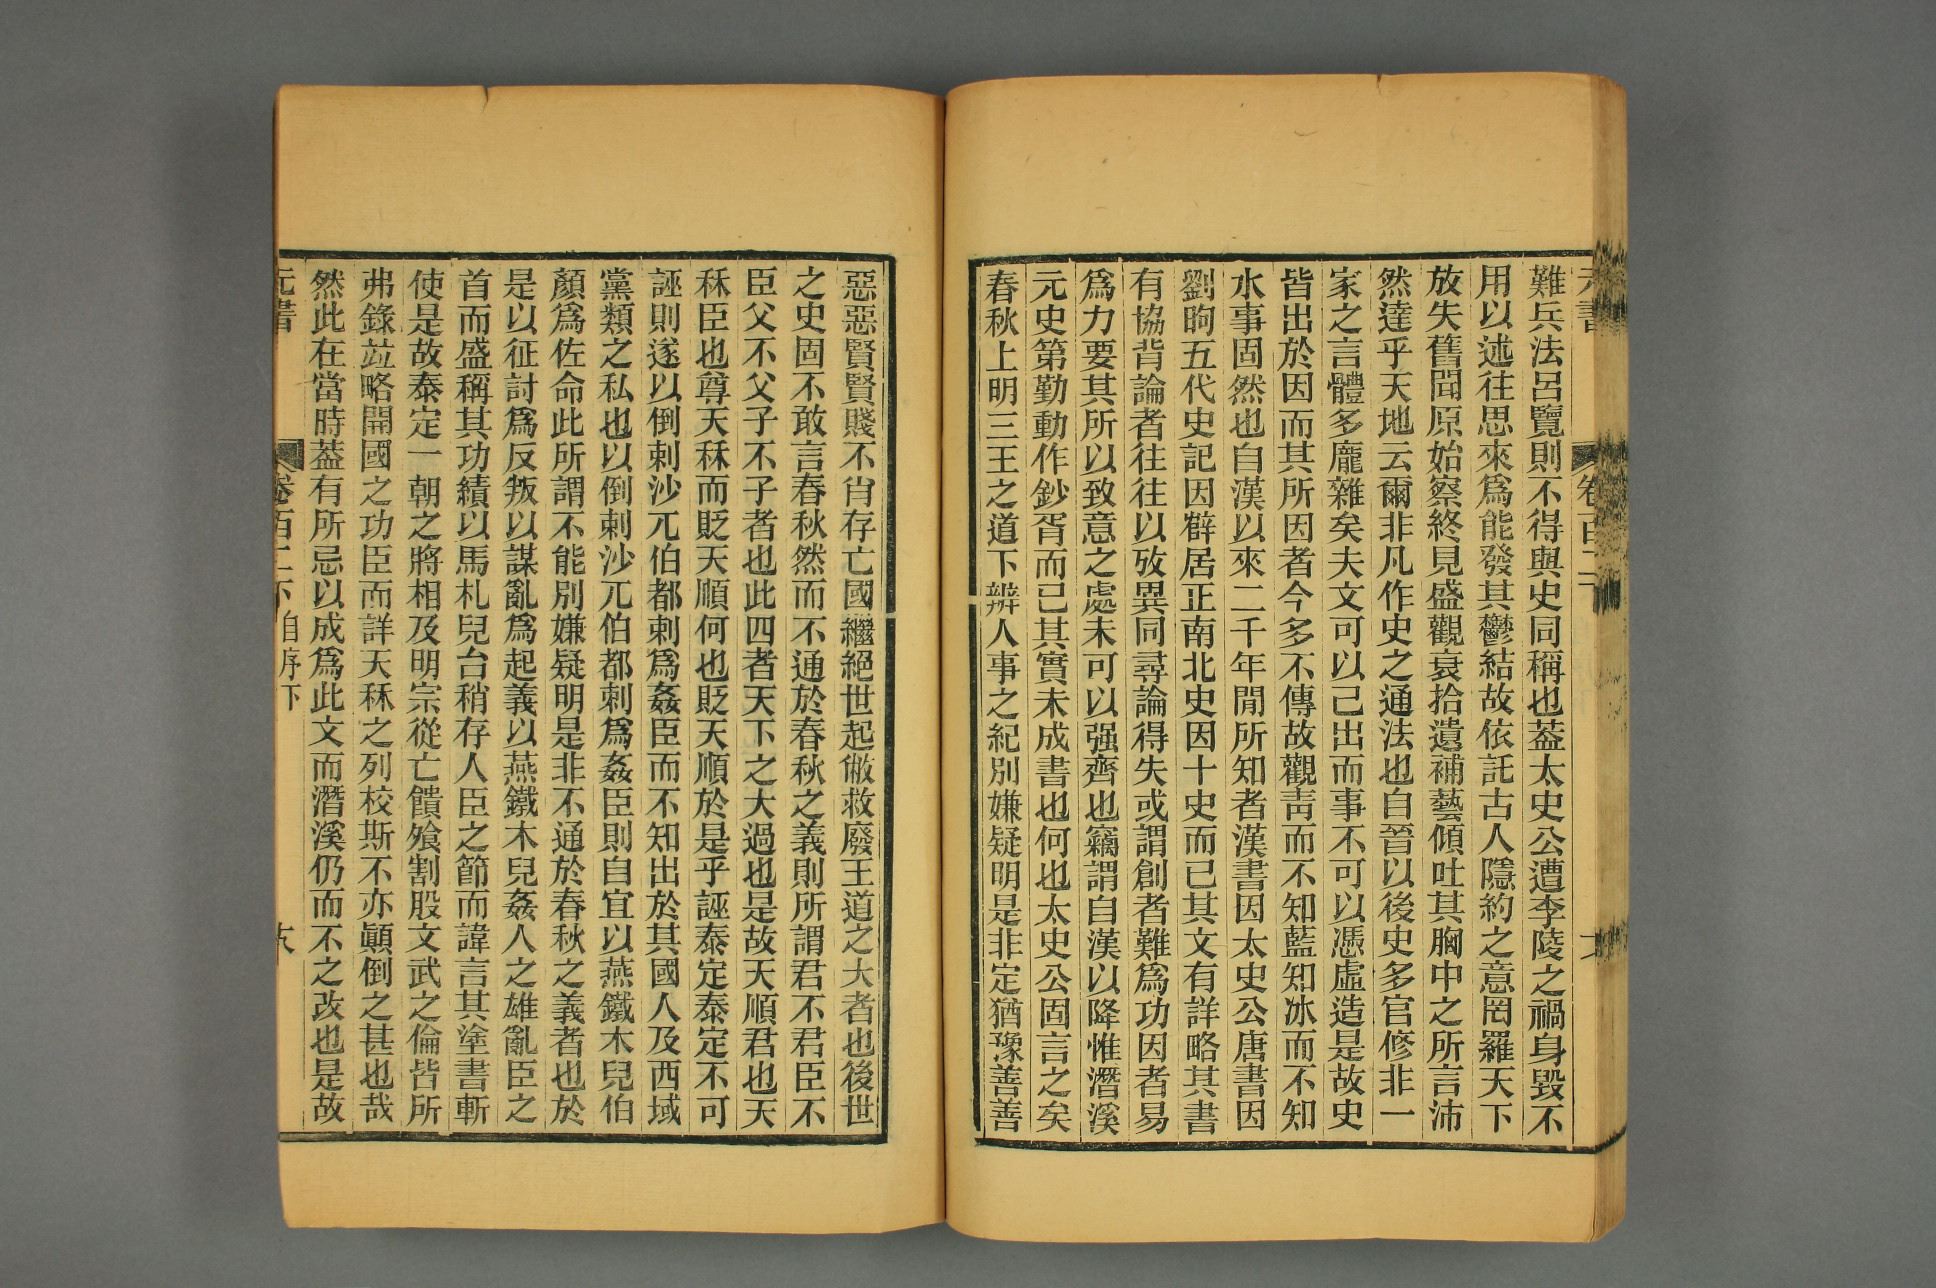 元書
卷百二
難兵法呂覽則不得與史同稱也葢太史公遭李陵之禍身毀不
用以述往思來爲能發其鬱結故依託古人隱約之意罔羅天下
放失舊聞原始察終見盛觀衰拾遺補藝傾吐其胸中之所言沛
然達乎天地云爾非凡作史之通法也自晉以後史多官修非一
家之言體多龐雜矣夫文可以己出而事不可以憑虛造是故史
皆出於因而其所因者今多不傳故觀靑而不知藍知冰而不知
水事固然也自漢以來二千年閒所知者漢書因太史公唐書因
劉昫五代史記因薜居正南北史因十史而已其文有詳略其書
有協背論者往往以攷異同尋論得失或謂創者難爲功因者易
爲力要其所以致意之處未可以强齊也竊謂自漢以降惟潛溪
元史第勤動作鈔胥而已其實未成書也何也太史公固言之矣
春秋上明三王之道下辨人事之紀別嫌疑明是非定猶豫善善
惡惡賢賢賤不肖存亡國繼絕世起敝救廢王道之大者也後世
之史固不敢言春秋然而不通於春秋之義則所謂君不君臣不
臣父不父子不子者也此四者天下之大過也是故天順君也天
秝臣也尊天秝而貶天順何也貶天順於是乎誣泰定泰定不可
誣則遂以倒剌沙兀伯都剌爲姦臣而不知出於其國人及西域
黨類之私也以倒剌沙兀伯都剌爲姦臣則自宜以燕鐵木兒伯
顏爲佐命此所謂不能別嫌疑明是非不通於春秋之義者也於
是以征討爲反叛以謀亂爲起義以燕鐵木兒姦人之雄亂臣之
首而盛稱其功績以馬札兒台稍存人臣之節而諱言其塗書斬
使是故泰定一朝之將相及明宗從亡饋飱割股文武之倫皆所
弗錄竝略開國之功臣而詳天秝之列校斯不亦顚倒之甚也哉
然此在當時葢有所忌以成爲此文而潛溪仍而不之改也是故
元書
卷百二下 自序下